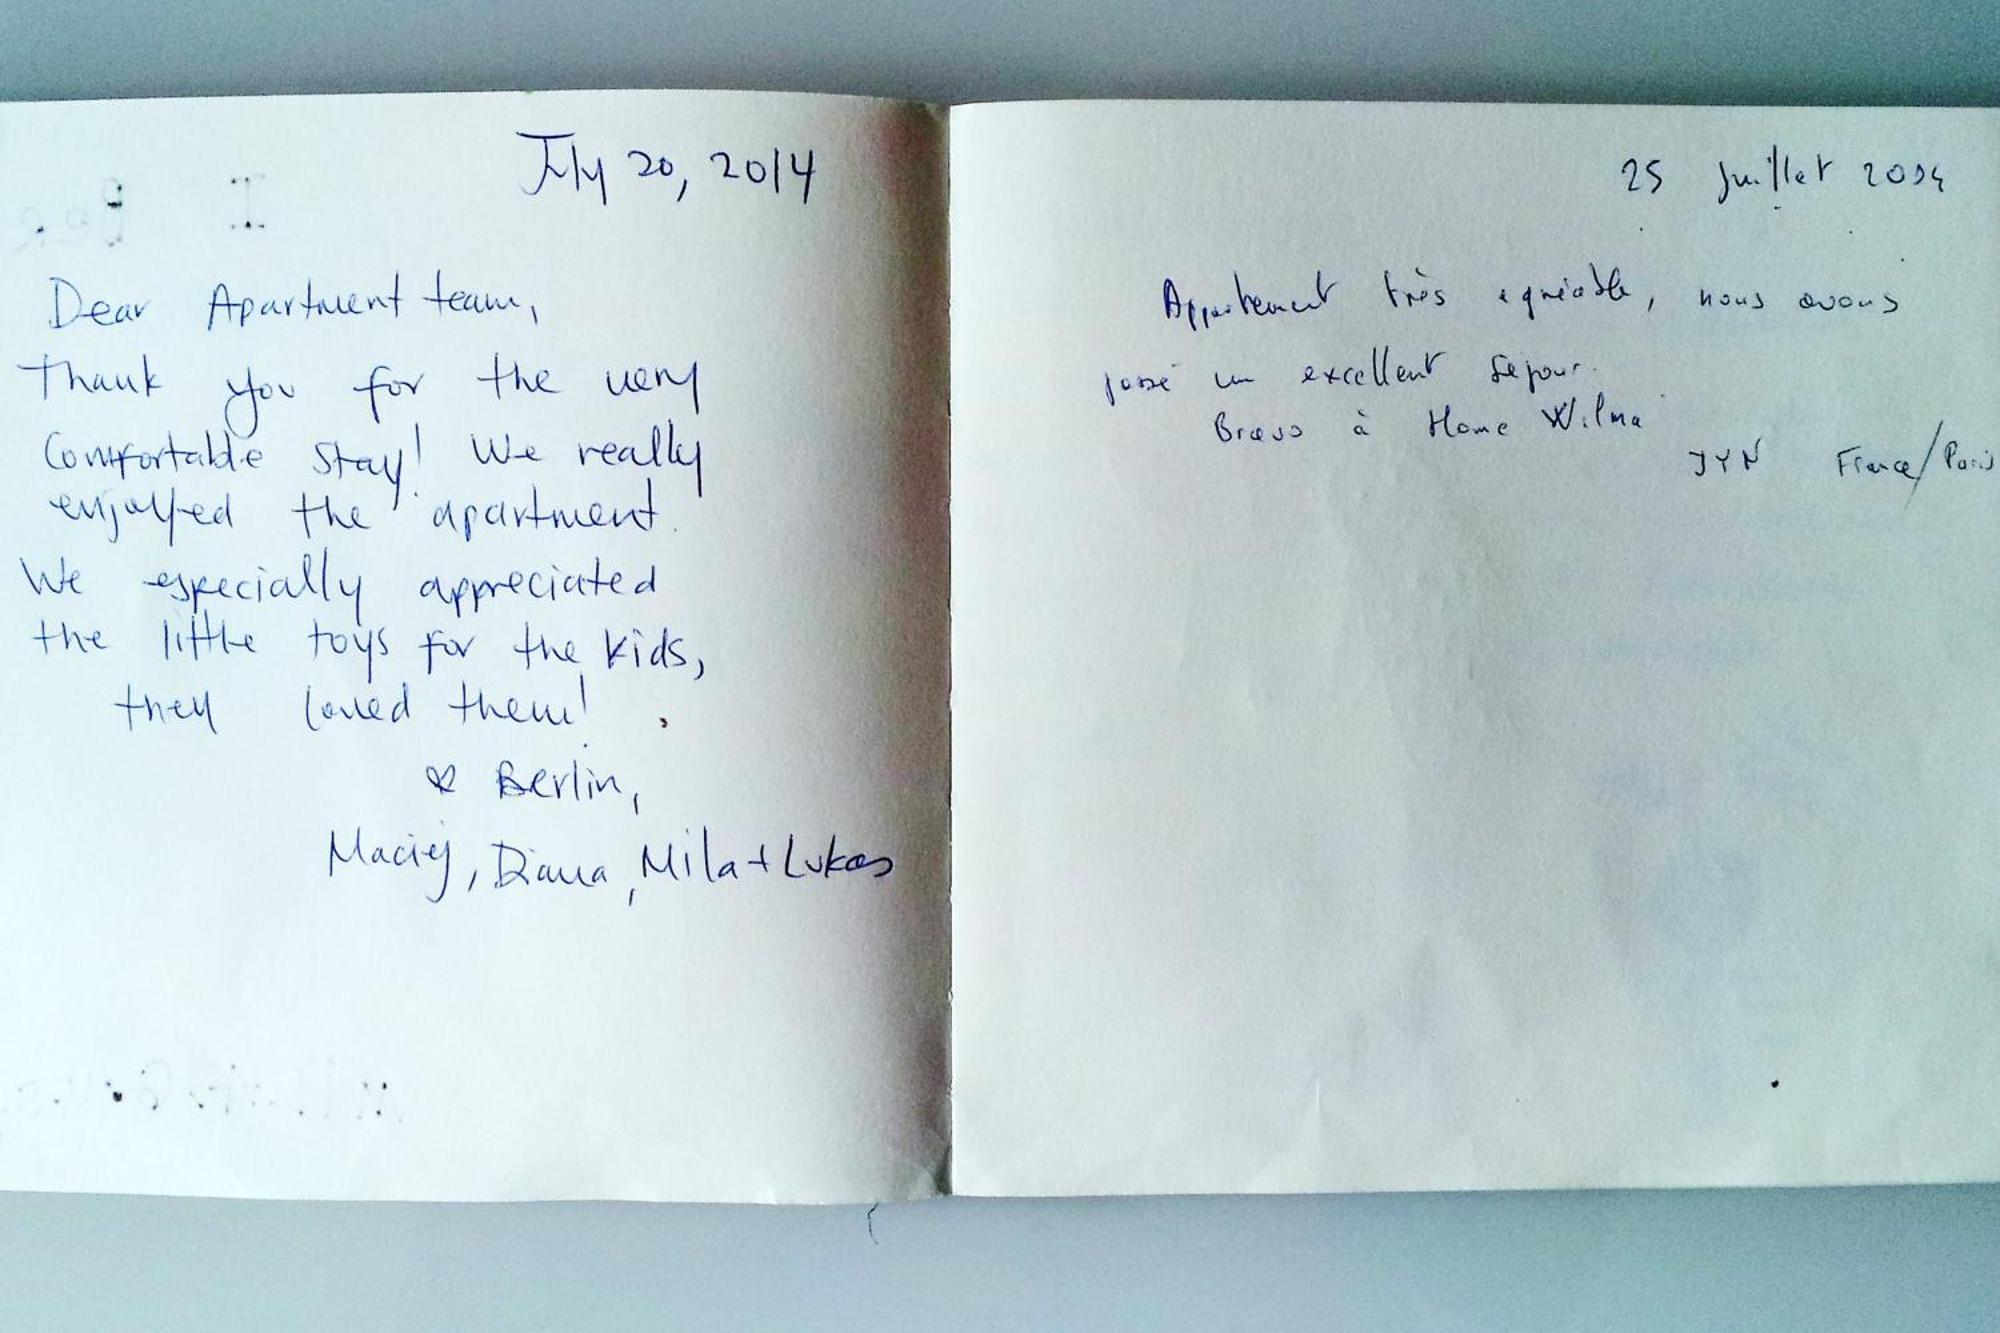 July 20, 2014
Dear Apartment team,
Thank you for the very
comfortable stay! We really
enjoyed the apartment.
We especially appreciated
the little toys for the kids,
they loved them!
Berlin,
Maciej, Diana, Mila + Lukas
25 Juillet 2014
Appartement très agréable, nous avons
passé un excellent séjour.
Bravo à Home Wilma
JYN France/Paris